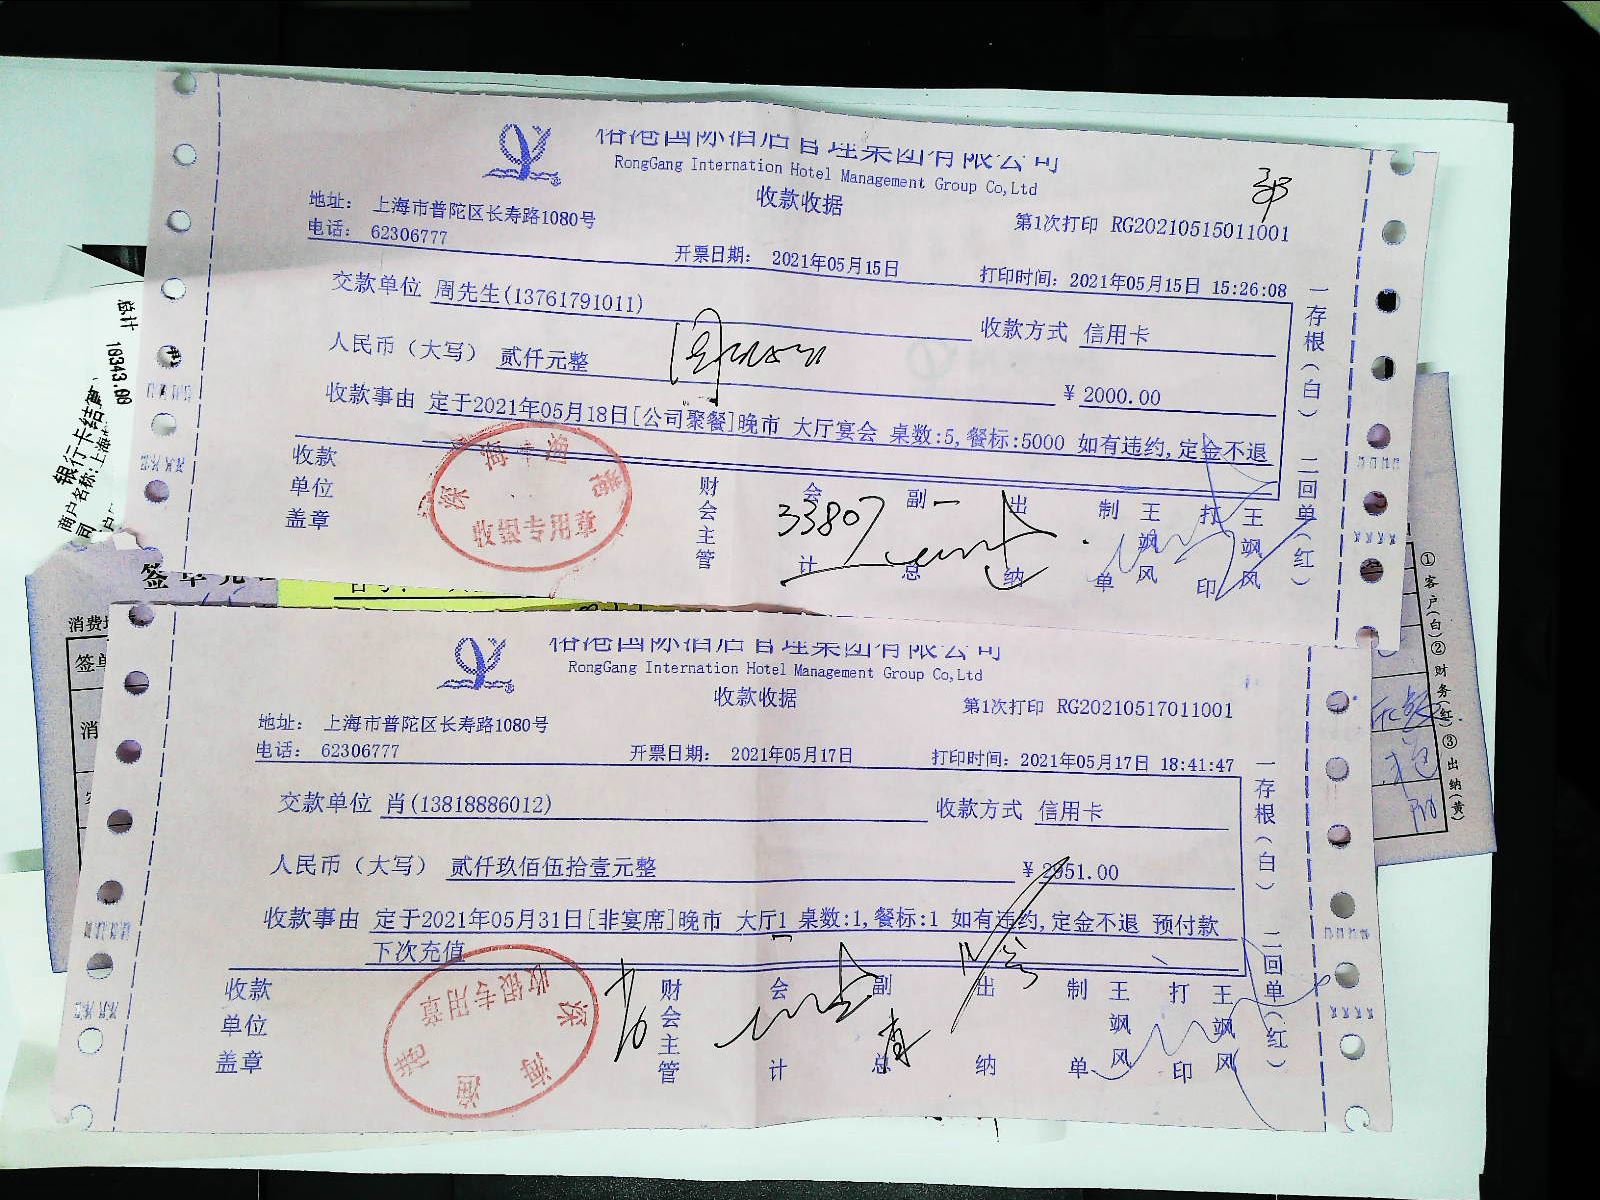 裕港国际酒店管理集团有限公司
RongGang Internation Hotel Management Group Co,Ltd
收款收据
地址: 上海市普陀区长寿路1080号
第1次打印 RG20210515011001
电话: 62306777
开票日期: 2021年05月15日
打印时间: 2021年05月15日 15:26:08
交款单位 周先生(13761791011)
收款方式 信用卡
人民币（大写） 贰仟元整
¥ 2000.00
收款事由 定于2021年05月18日[公司聚餐]晚市 大厅宴会 桌数:5,餐标:5000 如有违约,定金不退
收款单位盖章
财会主管
会计
副总
出纳
制单
王飒风
打印
王飒风
一存根(白) 二回单(红)
收银专用章
33807
总计 16343.00
银行卡结算
商户名称:上海
签单
消费
签单
消
裕港国际酒店管理集团有限公司
RongGang Internation Hotel Management Group Co,Ltd
收款收据
第1次打印 RG20210517011001
地址: 上海市普陀区长寿路1080号
电话: 62306777
开票日期: 2021年05月17日
打印时间: 2021年05月17日 18:41:47
交款单位 肖(13818886012)
收款方式 信用卡
人民币（大写） 贰仟玖佰伍拾壹元整
¥ 2951.00
收款事由 定于2021年05月31日[非宴席]晚市 大厅1 桌数:1,餐标:1 如有违约,定金不退 预付款
下次充值
收款单位盖章
财会主管
会计
副总
出纳
制单
王飒风
打印
王飒风
一存根(白) 二回单(红)
收银专用章
①客户(白)②财务(红)③出纳(黄)